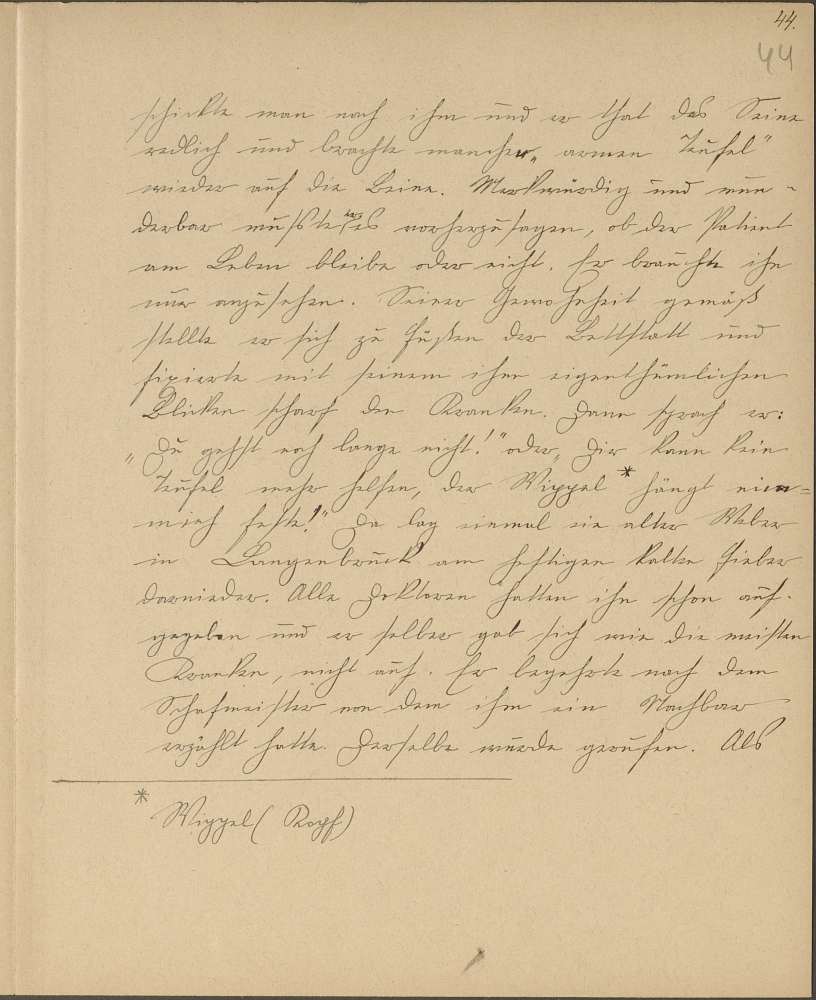 44.
44
schickte man nach ihm und er that das Seine
redlich und brachte manchen „armen Teufel"
wieder auf die Beine. Merkwürdig und wun-
derbar wußte er es vorherzusagen, ob der Patient
am Leben bleibe oder nicht. Er brauchte ihn
nur anzusehen. Seiner Gewohnheit gemäß
stellte er sich zu Füßen der Bettstatt und
fixierte mit seinem ihm eigenthümlichen
Blicken scharf den Kranken. Dann sprach er:
„Du gehst noch lange nicht!" oder „Dir kann kein
Teufel mehr helfen, der Wippel * hängt
fest!" Da lag einmal ein alter Weber
in Langenbruck am heftigen kalten Fieber
darnieder. Alle Doktoren hatten ihn schon auf-
gegeben und er selber gab sich wie die meisten
Kranken, nicht auf. Er begehrte nach dem
Schafmeister von dem ihm ein Nachbar
erzählt hatte. Derselbe wurde gerufen. Als
* Wippel (Kopf)